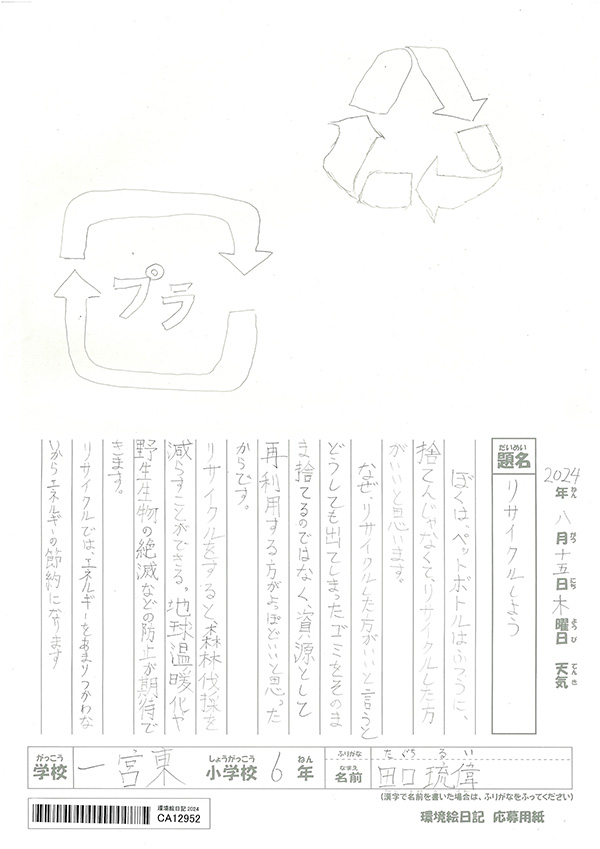 プラ
2024年 八月十五日木曜日 天気
ねん がつ にち ようび てんき
だいめい
題名 リサイクルしよう
ぼくは、ペットボトルはふつうに、
捨てんじゃなくて、リサイクルした方
がいいと思います。
なぜ、リサイクルした方がいいと言うと
どうしても出てしまったゴミをそのま
ま捨てるのではなく、資源として
再利用する方がよっぽどいいと思った
からです。
リサイクルをすると森林伐採を
減らすことができる。地球温暖化や
野生生物の絶滅などの防止が期待で
きます。
リサイクルでは、エネルギーをあまりつかわな
いからエネルギーの節約になります
がっこう しょうがっこう ねん
学校 一宮東 小学校 6年
ふりがな たぐち るい
なまえ
名前 田口琉偉
(漢字で名前を書いた場合は、ふりがなをふってください)
環境絵日記2024
CA12952
環境絵日記 応募用紙